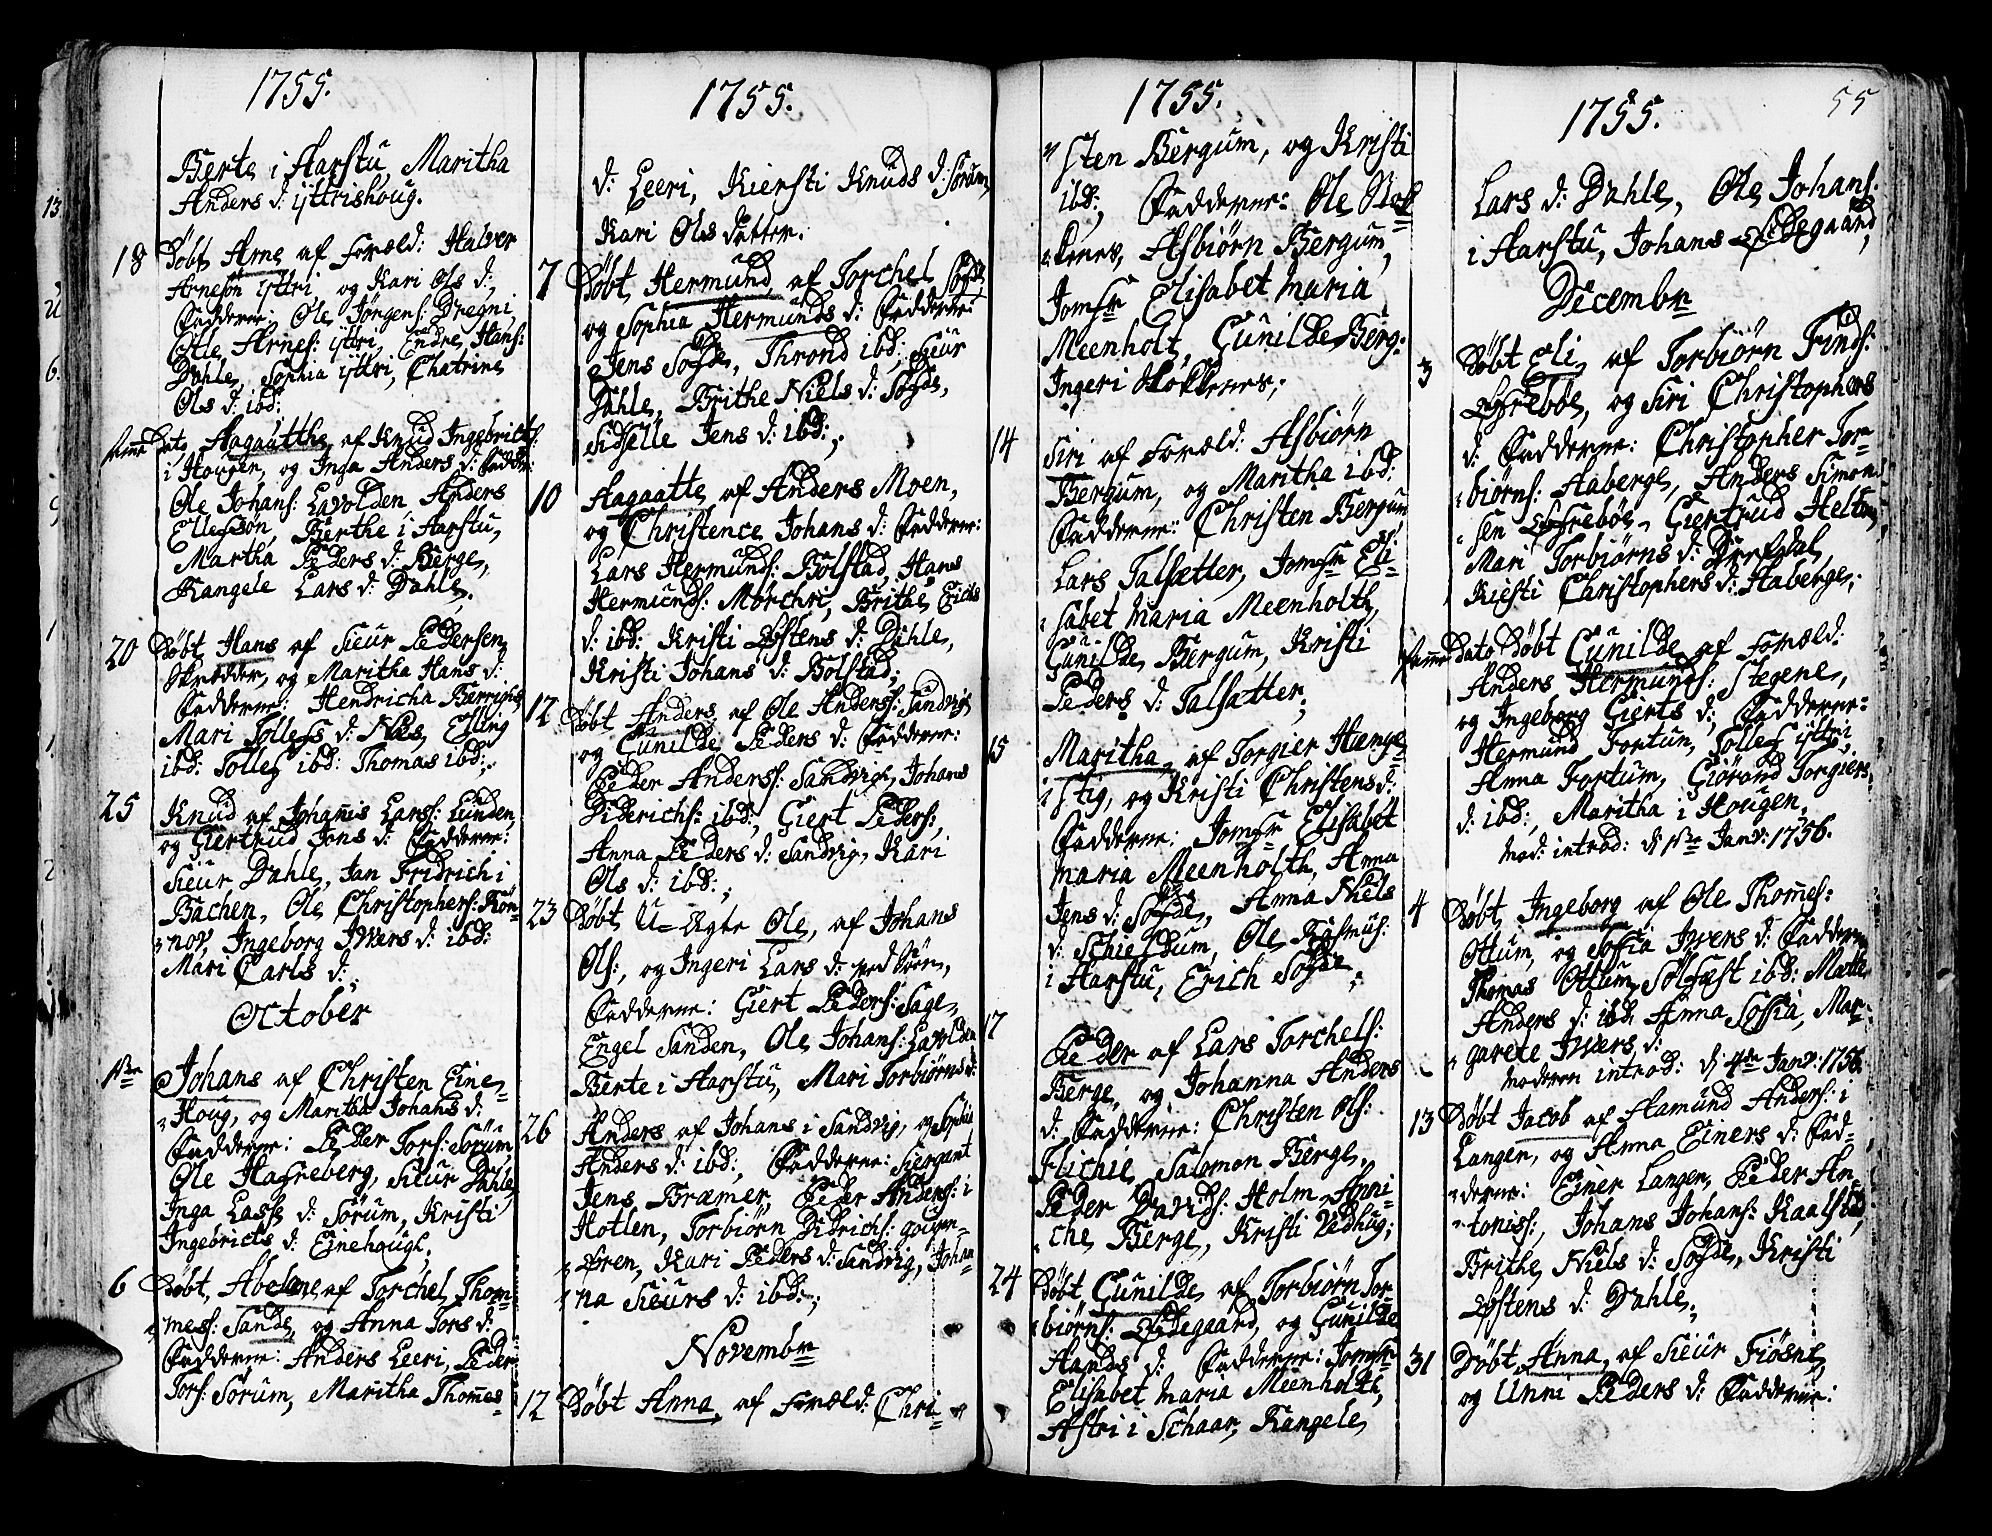 1755.
Berte i Aarstu, Maritha
Anders d: ÿttrishoug.
18 Døbt Arne af Foræld: Halver
Arneson ÿttri og Kari Ols d:
Fadderne: Ole Jørgens: Dregni,
Ole Arnes: ÿttri, Endre Hans:
Dahle, Sophia ÿttri, Chatrine
Ols d: ibd:
Samme Dato Aagaatthe af Knud Ingebricts:
i Hougen, og Inga Anders d: Fadder:
Ole Johans: Lavolden, Anders
Ellefsøn, Berthe i Aarstu,
Martha Peders d: Berge,
Rangele Lars d: Dahle,
20 Døbt Hans af Sieur Pedersen
Skrædder, og Maritha Hans d:
Fadderne: Hendricha
Mari Tollefs d: Næs, Elling
ibd: Tollef ibd: Thomas ibd:
25 Knud af Johannis Lars: Lunden,
og Giertrud Jons d: Fadderne:
Sieur Dahle, Jan Fridrich i
Bachen, Ole Christophers: Røn-
nov, Ingeborg Iwers d: ibd:
Mari Carls d:
October
1ste Johans af Christen Eine-
Houg, og Maritha Johans d:
Fadderne: Peder Tors: Sørum
Ole Hafreberg, Sieur Dahle
Inga Lasss d: Sørum, Kristi
Ingebricts d: Einehougl,
6 Døbt, Abelone af Torchel Thom-
mess: Sande, og Anna Tors d:
Fadderne: Anders Leeri, Peder
Tors: Sørum, Maritha Thomes-
1755.
d: Leeri, Kiersti Knuds d: Sørum,
Kari Ols datter.
7 Døbt, Hermund af Torchel Sogde,
og Sophia Hermunds d: Fadderne:
Jens Sogde, Thrond ibd: Sieur
Dahle, Brithe Niels d: Sogde,
Sidselle Jens d: ibd:
10 Aagaatte af Anders Moen,
og Christence Johans d: Fadderne:
Lars Hermunds: Bolstad, Hans
Hermunds: Morchri, Brithe Erichs
d: ibd: Kristi Øfstens d: Dahle,
Kristi Johans d: Bolstad;
12 Døbt Anders af Ole Anderss: Sandvig
og Gunilde Peders d: Fadderne:
Peder Anderss: Sandvig, Johans
Diderichs: ibd: Giert Peders:,
Anna Peders d: Sandvig, Kari
Ols d: ibd:
23 Døbt U-Ægte Ole, af Johans
Ols:, og Ingeri Lars d:
Fadderne: Giert Peders: Sage,
Engel Sanden, Ole Johans: Lavolden
Berte i Aarstu, Mari Torbiørns d:
26 Anders af Johans i Sandvig, og Sophia
Anders d: ibd: Fadderne: Siergant
Jens Bræmer, Peder Anders: i
Hotlen, Torbiørn Didrichs:
Kari Peders d: Sandvig, Joha-
na Sieurs d: ibd:
Novembr
12 Døbt Anna, af Foræld: Chri-
1755.
sten Bergum, og Kristi
ibd:, Fadderne: Ole
Asbiørn Bergum,
Jomfr Elisabet Maria
Meenholt, Gunilde Berg:
Ingeri
14 Siri af Foræld: Asbiørn
Bergum, og Maritha ibd:
Fadderne: Christen Bergum
Lars Talsætter, Jomfr Eli-
sabet Maria Meenholth,
Gunilde Bergum, Kristi
Peders d: Talsætter,
15 Maritha, af Torgier Hænge-
stig, og Kristi Christens d:
Fadderne: Jomfr Elisabet
Maria Meenholth, Anna
Jens d: Sogde, Anna Niels
d: Schieldum, Ole Rasmus:
i Aarstu, Erich Sogde.
17 Peder af Lars Torchels:
Berge, og Johanna Anders
d: Fadderne: Christen Ols:
Flichie, Salomon Berge,
Peder Davids: Holm, Anni-
che Berge, Kristi Vedhug;
24 Døbt Gunilde af Torbiørn Tor-
biørns: Ødegaard, og Gunilde
Aamds d: Fadderne: Jomfr
Elisabet Maria Meenholth,
Astri i Schaar, Rangele
55
1755.
Lars d: Dahle, Ole Johans:
i Aarstu, Johans Ødegaard,
Decembr
3 Døbt Eli, af Torbiørn Finds:
og Siri Christophers
d: Fadderne: Christopher Tor-
biørns: Aaberge, Anders Simon-
sen Giertrud
Mari Torbiørns d:
Kiesti Christophers d: Aaberge;
Samme Dato Døbt Gunilde af Foræld:
Anders Hermunds: Stegene,
og Ingeborg Gierts d: Fadderne:
Hermund Fortun, Tollef ÿttri,
Anna Fortum, Giørand Torgiers
d: ibd:, Maritha i Hougen.
Mod: introd: d 1ste Janv: 1756.
4 Døbt, Ingeborg af Ole Thomes:
Ottum, og Soffia Iwers d: Fadderne
Thomas Ottum, Solfæst ibd: Marta
Anders d: ibd, Anna Soffia, Mar-
garete Iwers d:
Moderen introd: d 4de Janv: 1756.
13 Døbt Jacob af Aamund Anders: i
Langen, og Anna Einers d: Fad-
derne: Einer Langen, Peder An-
toniss:, Johans Johans: Kaalstad,
Brithe Niels d: Sogde, Kristi
Øfstens d: Dahle.
31 Døbt, Anna, af Sieur Fiøsne,
og Unna Peders d: Fadderne: